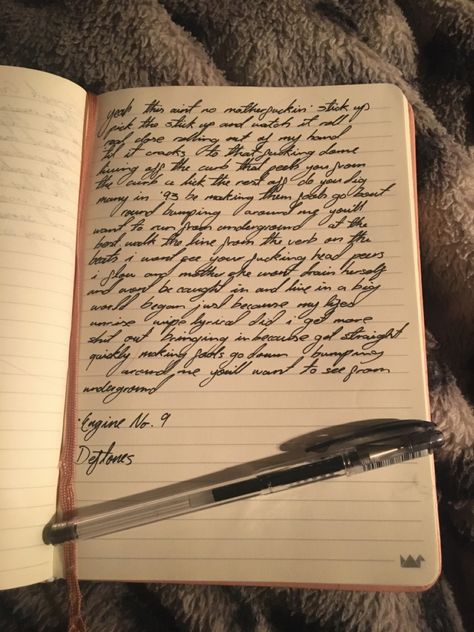 yeah this aint no motherfuckin' stick up
pick the stick up and watch it roll
real close rolling out of my hand
til it cracks to that fucking dome
hung off the curb that peels you from
the curb a lick the rest off do you dig
many in '93 be making them fools go bout
round bumping around me you'll
want to run from underground at the
bout walk the line from the verb on the
beats i wont see your fucking head peers
i flow and mother she wont drain herself
and wont be caught in and live in a big
world began just because my
wipe lyrical did i get more
shit out bringing in because get straight
quickly making fools go down bumping
around me you'll want to see from
underground
'Engine No. 9
Deftones